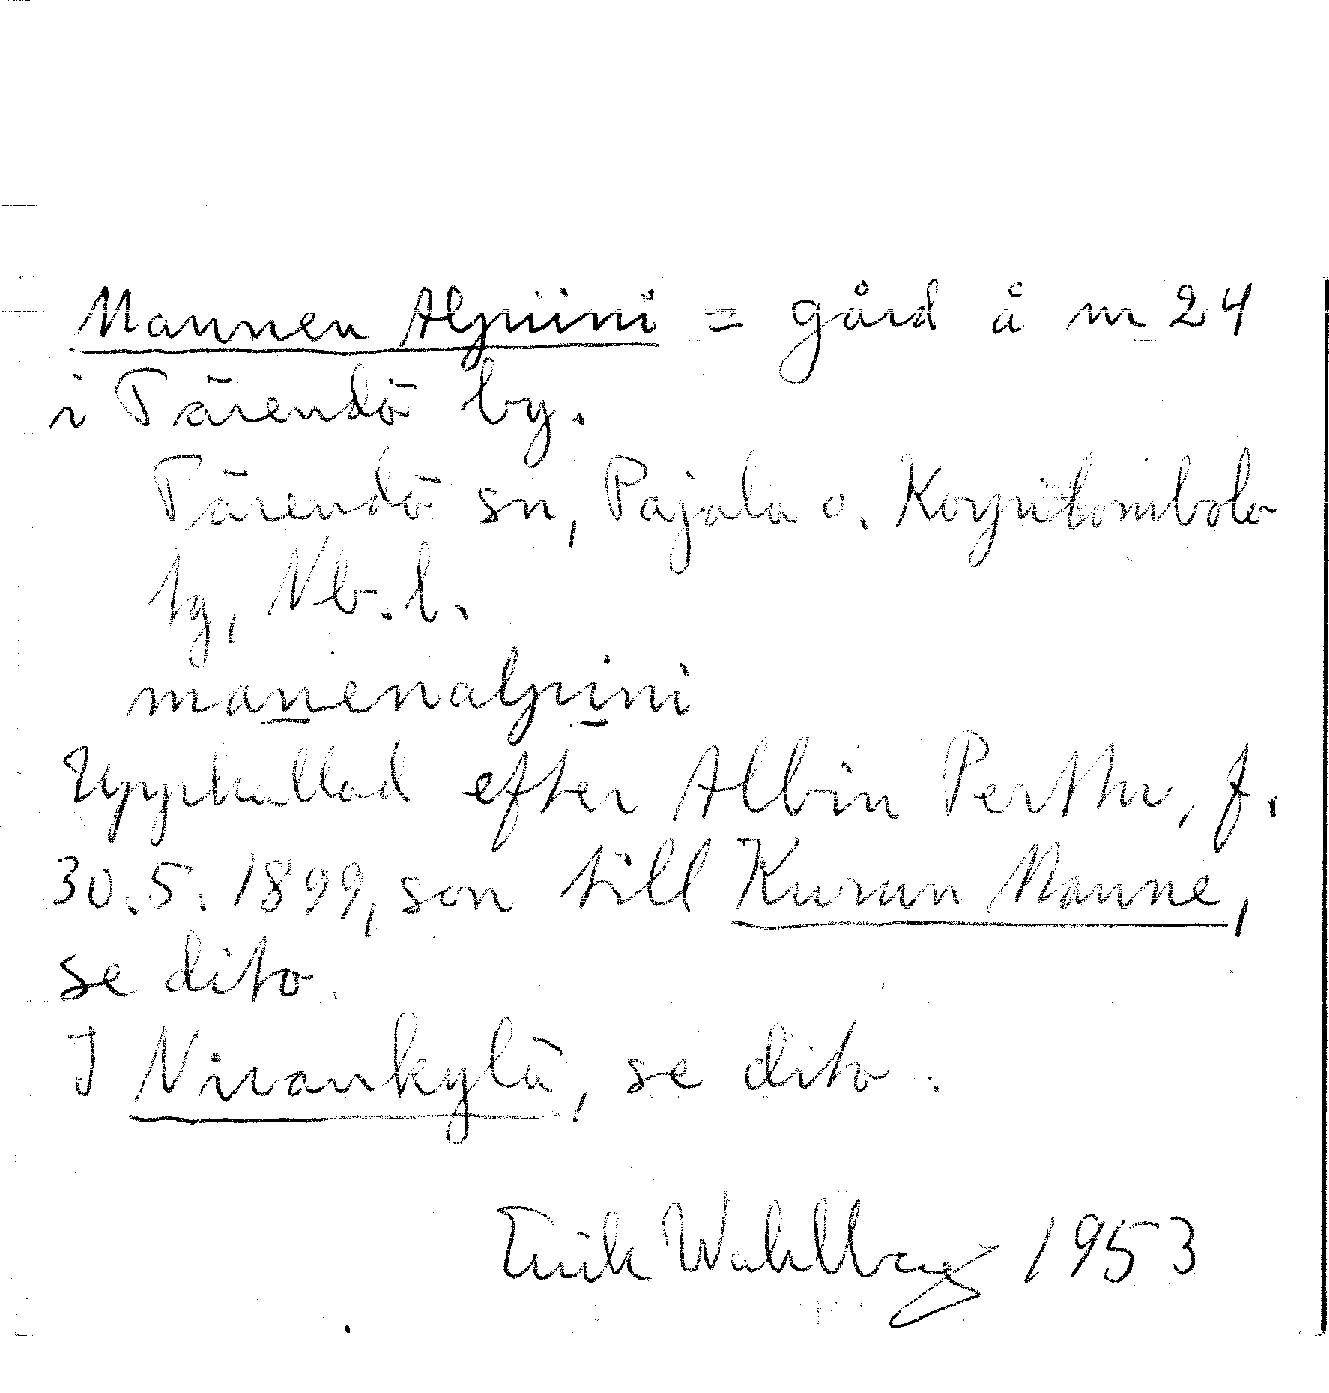 Mannen Alpiini = gård å m 24
i Tärendö by.
Tärendö sn, Pajala o. Korpilombolo
tg, Nb.l.
manenalpini
Uppkallad efter Albin Perttu, f.
30.5.1899, son till Kurun Manne,
se dito.
I Nivankylä, se dito.
Erik Wahlberg 1953